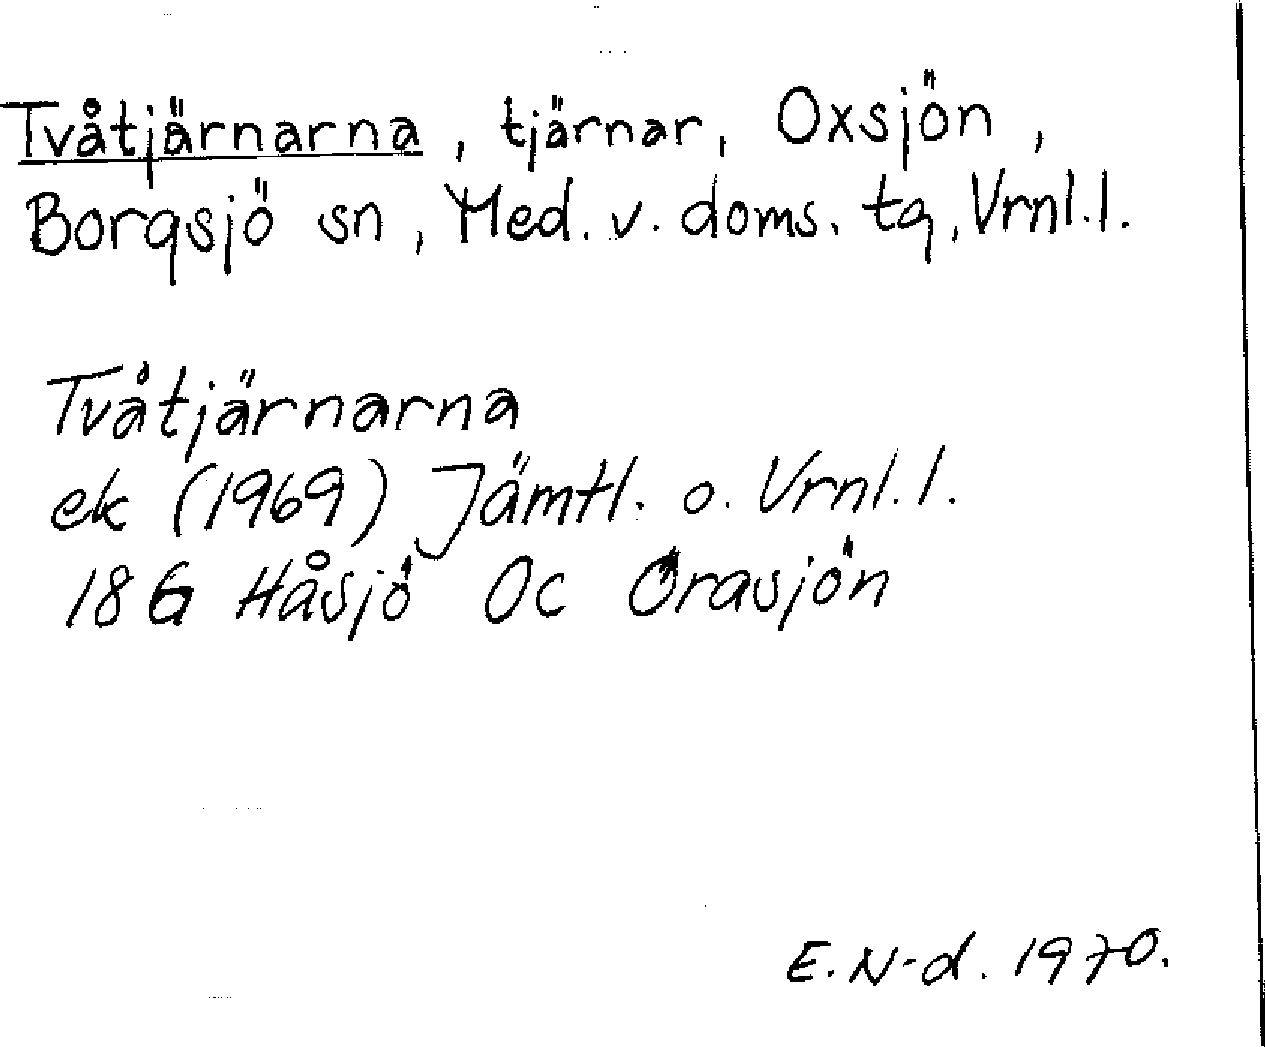 Tvåtjärnarna, tjärnar, Oxsjön,
Borgsjö sn, Med. v. doms. tg, Vrnl.l.
Tvåtjärnarna
ek (1969) Jämtl. o. Vrnl.l.
18G Håsjö Oc Örasjön
E.N-d. 1970.